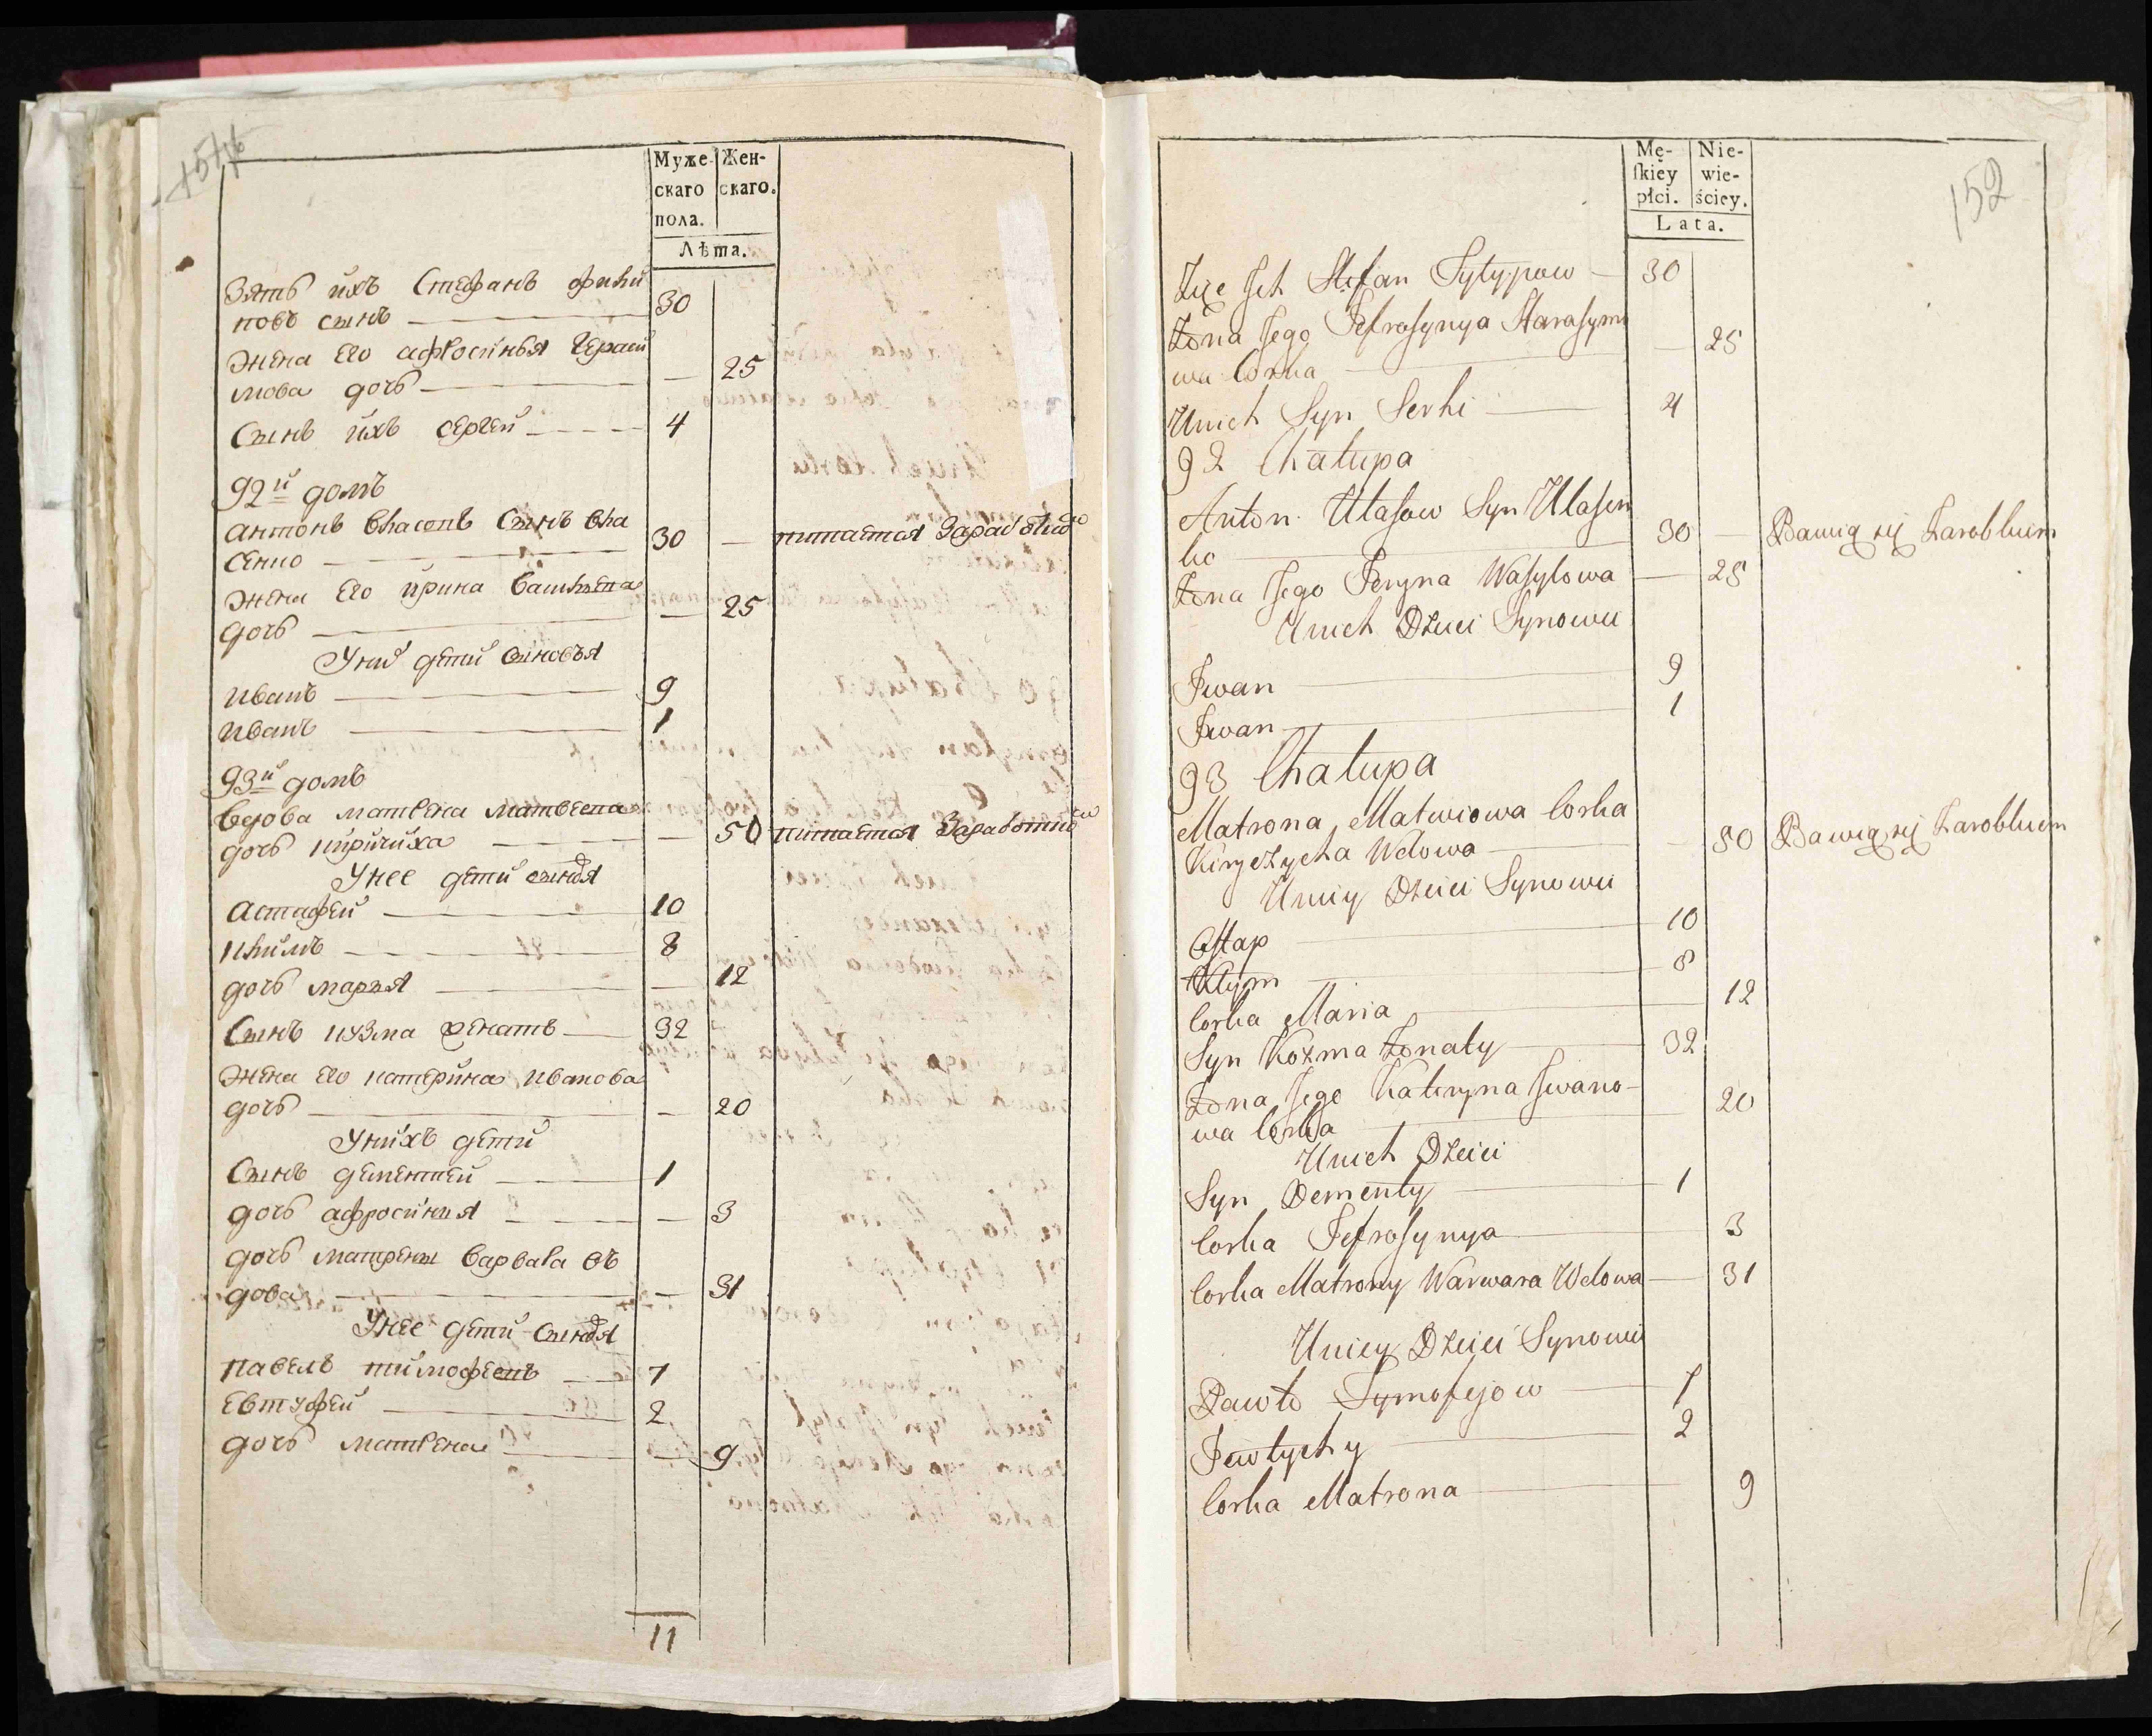 Муже-
скаго
пола.
Жен-
скаго.
Лѣта.
Зять ихъ Стефанъ Фили
повъ сынъ 30
Жена Его афросинья Герасй
мова дочь — 25
Сынъ ихъ Сергей 4
92й домъ
антонъ власовъ Сынъ вла
сенко 30 — питается Заработко
Жена Его ирина василева
дочь — 25
У них дети сыновья
иванъ 9
иванъ 1
93й домъ
вдова матрена матвеева
дочь киричиха — 50 питается Заработко
У нее дети
Астафей 10
климъ 8
дочь марья — 12
Сынъ кузма женатъ 32
Жена Его катерина иванова
дочь — 20
У нихъ дети
Сынъ дементей 1
дочь афросинья — 3
дочь матрены варвара въ
дова — 31
У нее дети
павелъ тимофеевъ 7
Евтуфей 2
дочь матрена — 9
11
152
Mę-
ſkiey
płci.
Nie-
wie-
ściey.
Lata.
Zięć Ich Stefan Fylypow 30
Żona Jego Jefrosynya Harasymo
wa Corka — 25
U nich Syn Serhi 4
92 Chałupa
Anton Ułasow Syn Ułasen
ko 30 — Bawią się Zarobkiem
Żona Jego Jeryna Wasylowa — 25
U nich Dzieci Synowie
Iwan 9
Iwan 1
93 Chałupa
Matrona Matwiowa Corka
Kiryczycha Wdowa — 50 Bawią się Zarobkiem
U niey Dzieci Synowie
Ostap 10
Kłym 8
Corka Maria 12
Syn Kozma Żonaty 32
Żona Jego Kateryna Iwano-
wa Corka 20
U nich Dzieci
Syn Dementy 1
Corka Jefrosynya 3
Corka Matrony Warwara Wdowa — 31
U niey Dzieci Synowie
Pawło Tymofejow 7
Jewtychy 2
Corka Matrona 9